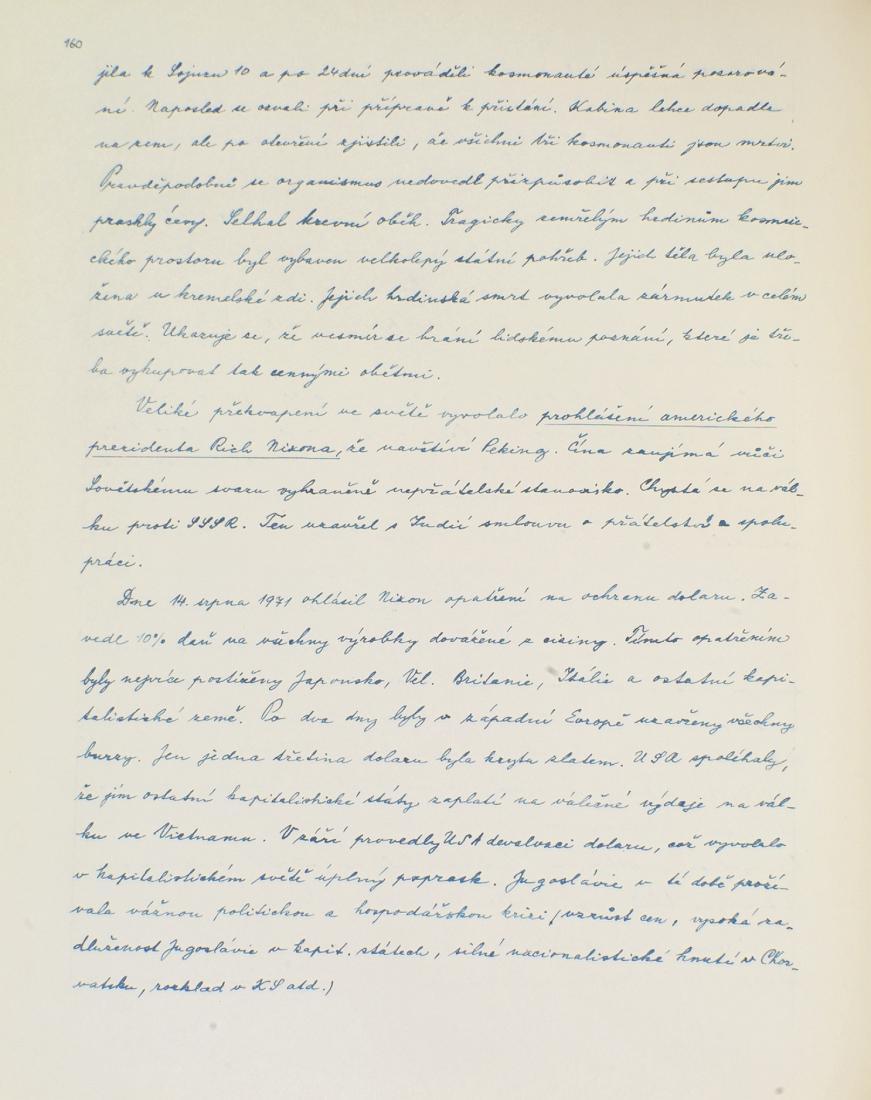 160
jila k Sojuzu 10 a po 24 dní prováděli kosmonauté úspěšná pozorová-
ní. Naposled se ozvali při přípravě k přistání. Kabina lehce dopadla
na zem, ale po otevření zjistili, že všichni tři kosmonauti jsou mrtvi.
Pravděpodobně se organismus nedovedl přizpůsobit a při sestupu jim
praskly cévy. Selhal krevní oběh. Tragicky zemřelým hrdinům kosmic-
ckého prostoru byl vybaven velkolepý státní pohřeb. Jejich těla byla ulo-
žena u kremelské zdi. Jejich hrdinská smrt vyvolala zármutek v celém
světě. Ukazuje se, že vesmír se brání lidskému poznání, které je tře-
ba vykupovat tak cennými obětmi.
Veliké překvapení ve světě vyvolalo prohlášení amerického
prezidenta Rich Nixona, že navštíví Peking. Čína zaujímá vůči
Sovětskému svazu vyhraněně nepřátelské stanovisko. Chystá se na vál-
ku proti SSSR. Ten uzavřel s Indií smlouvu o přátelství a spolu-
práci.
Dne 14. srpna 1971 ohlásil Nixon opatření na ochranu dolaru. Za-
vedl 10% daň na všechny výrobky dovážené z ciziny. Tímto opatřením
byly nejvíce postiženy Japonsko, Vel. Britanie, Itálie a ostatní kapi-
talistické země. Po dva dny byly v západní Evropě uzavřeny všechny
burzy. Jen jedna třetina dolaru byla kryta zlatem. USA spoléhaly,
že jim ostatní kapitalistické státy zaplatí na válečné výdaje na vál-
ku ve Vietnamu. V září provedly USA devalvaci dolaru, což vyvolalo
v kapitalistickém světě úplný poprask. Jugoslávie v té době proží-
vala vážnou politickou a hospodářskou krizi (vzrůst cen, vysoká za-
dluženost Jugoslávie v kapit. státech, silné nacionalistické hnutí v Chor-
vatsku, rozklad v KS atd.)